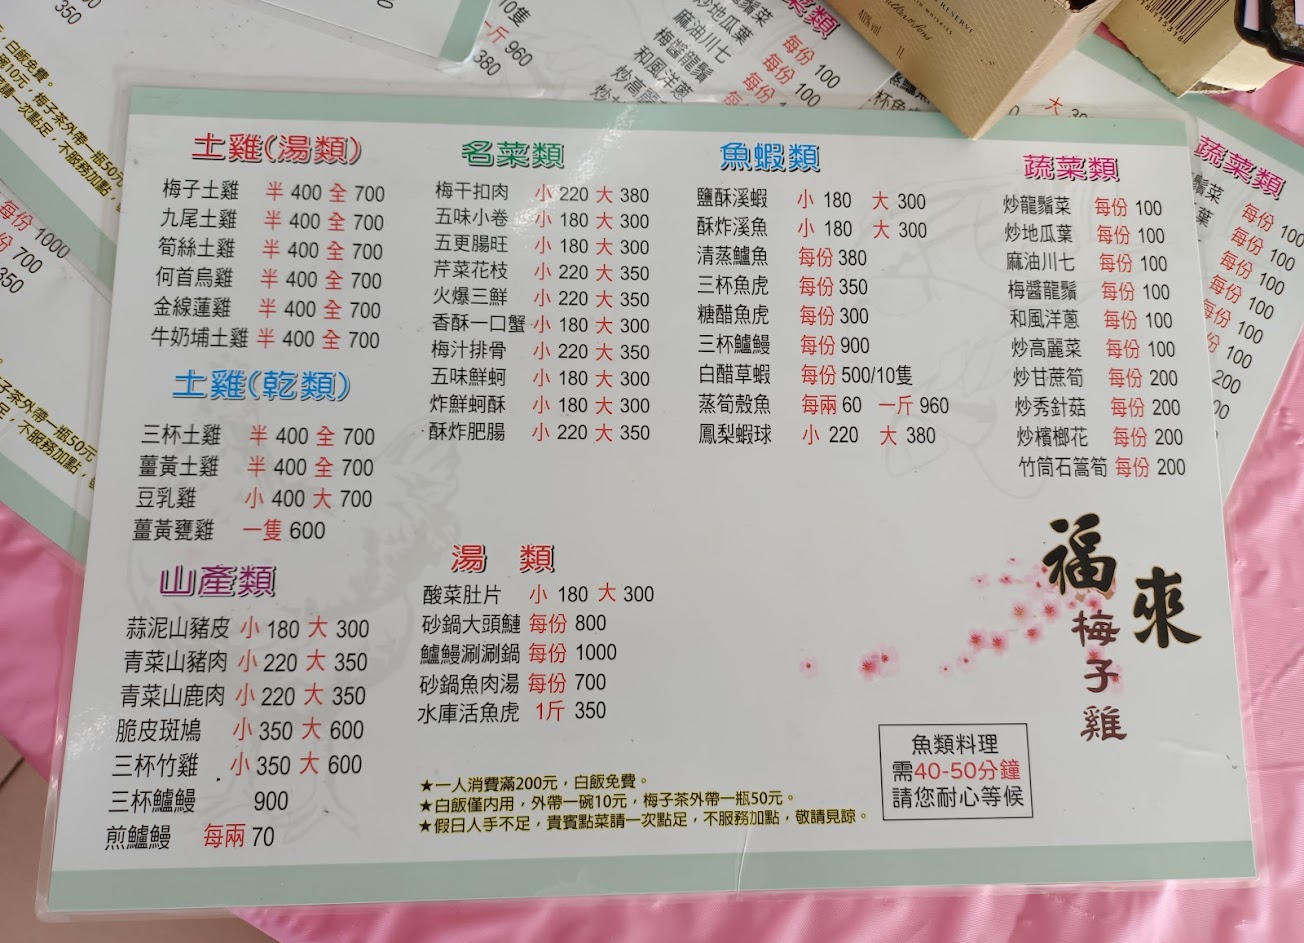 土雞(湯類)
梅子土雞 半 400 全 700
九尾土雞 半 400 全 700
筍絲土雞 半 400 全 700
何首烏雞 半 400 全 700
金線蓮雞 半 400 全 700
牛奶埔土雞 半 400 全 700
土雞(乾類)
三杯土雞 半 400 全 700
薑黃土雞 半 400 全 700
豆乳雞 小 400 大 700
薑黃甕雞 一隻 600
山產類
蒜泥山豬皮 小 180 大 300
青菜山豬肉 小 220 大 350
青菜山鹿肉 小 220 大 350
脆皮斑鳩 小 350 大 600
三杯竹雞 小 350 大 600
三杯鱸鰻 900
煎鱸鰻 每兩 70
名菜類
梅干扣肉 小 220 大 380
五味小卷 小 180 大 300
五更腸旺 小 180 大 300
芹菜花枝 小 220 大 350
火爆三鮮 小 220 大 350
香酥一口蟹 小 180 大 300
梅汁排骨 小 220 大 350
五味鮮蚵 小 180 大 300
炸鮮蚵酥 小 180 大 300
酥炸肥腸 小 220 大 350
湯 類
酸菜肚片 小 180 大 300
砂鍋大頭鰱 每份 800
鱸鰻涮涮鍋 每份 1000
砂鍋魚肉湯 每份 700
水庫活魚虎 1斤 350
魚蝦類
鹽酥溪蝦 小 180 大 300
酥炸溪魚 小 180 大 300
清蒸鱸魚 每份 380
三杯魚虎 每份 350
糖醋魚虎 每份 300
三杯鱸鰻 每份 900
白醋草蝦 每份 500/10隻
蒸筍殼魚 每兩 60 一斤 960
鳳梨蝦球 小 220 大 380
蔬菜類
炒龍鬚菜 每份 100
炒地瓜葉 每份 100
麻油川七 每份 100
梅醬龍鬚 每份 100
和風洋蔥 每份 100
炒高麗菜 每份 100
炒甘蔗筍 每份 200
炒秀針菇 每份 200
炒檳榔花 每份 200
竹筒石蒿筍 每份 200
福來
梅子雞
魚類料理
需40-50分鐘
請您耐心等候
★一人消費滿200元，白飯免費。
★白飯僅內用，外帶一碗10元，梅子茶外帶一瓶50元。
★假日人手不足，貴賓點菜請一次點足，不服務加點，敬請見諒。